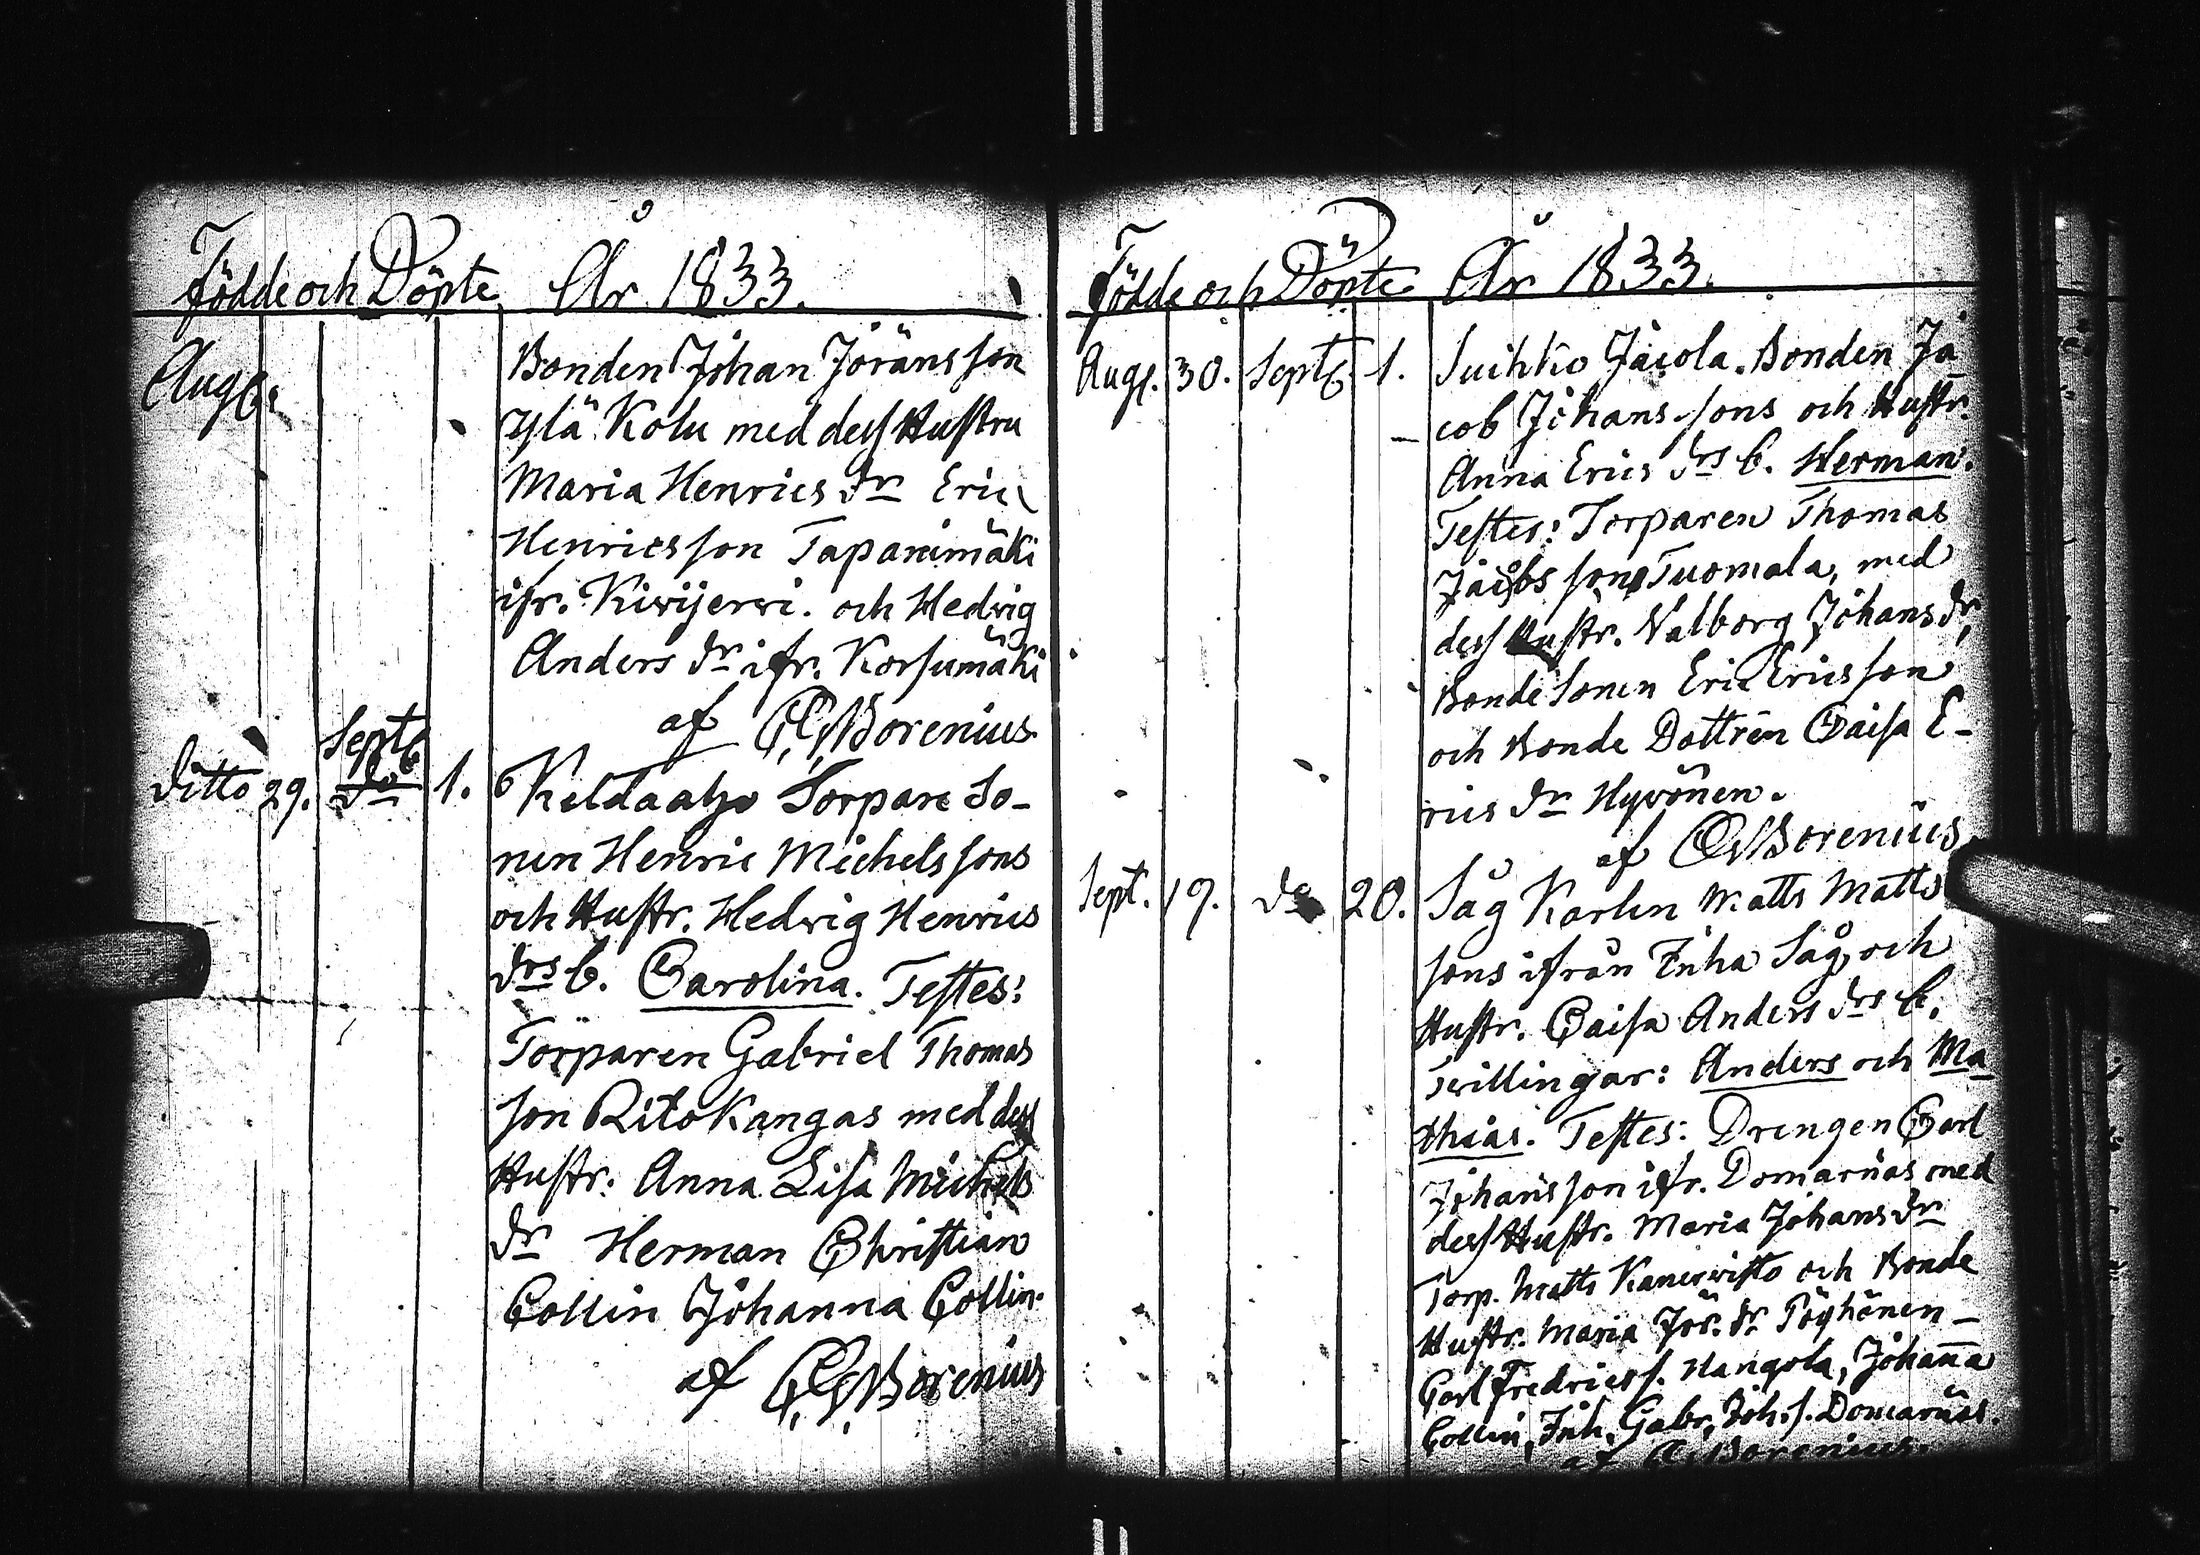 Födde och Döpte År 1833.
Augb. Bonden Johan Jöransson
Ylä Kolu med dess Hustru
Maria Henrics dr Eric
Henricsson Tapanimäki
ifr. Kiwijerwi. och Hedvig
Anders dr ifr. Korsumäki
af Borenius
Septb
Ditto 29. do 1. Keldaaho Torpare So-
nen Henric Michelssons
och Hustr. Hedvig Henrics
drs b. Carolina. Testes:
Torparen Gabriel Thomas
son Ritokangas med dess
Hustr. Anna Lisa Michels
dr Herman Christian
Collin Johanna Collin.
af Borenius
Födde och Döpte År 1833.
Aug. 30. Septb. 1. Suihko Jacola. Bonden Ja-
cob Johans sons och Hustr.
Anna Erics drs b. Herman.
Testes: Torparen Thomas
Jacobs son Tuomala, med
dess Hustr. Valborg Johans dr,
Bonde Sonen Eric Ericsson
och Bonde Dottren Caisa E-
rics dr Hyvönen.
af Borenius
Sept. 19. do 20. Såg Karlen Matts Matts
sons ifrån Inha Såg, och
Hustr. Caisa Anders drs b.
Twillingar: Anders och Ma-
thias. Testes: Drengen Carl
Johansson ifr. Domarnäs med
dess Hustr. Maria Johans dr
Torp. Matts Kanerwisto och Bonde
Hustr. Maria Jör. dr Pöyhönen –
Carl Fredricss. Hangola, Johanna
Collin, Inh. Gabr. Joh. s. Domarnäs.
af Borenius.